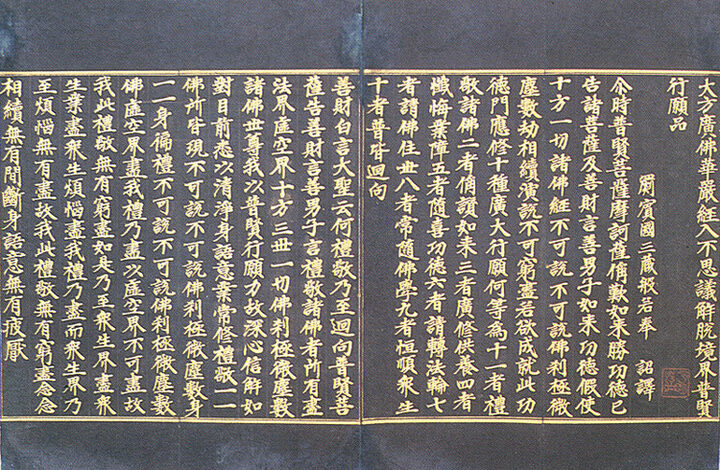 大方廣佛華嚴經入不思議解脫境界普賢
行願品
罽賓國三藏般若奉　詔譯
尒時普賢菩薩摩訶薩偁歎如来勝功徳已
告諸菩薩及善財言善男子如来功徳假使
十方一切諸佛經不可說不可說佛刹極微
塵數劫相續演說不可窮盡若欲成就此功
徳門應修十種廣大行願何等為十一者禮
敬諸佛二者偁讃如来三者廣修供養四者
懺悔業障五者隨喜功徳六者請轉法輪七
者請佛住丗八者常隨佛學九者恒順衆生
十者普皆迴向
善財白言大聖云何禮敬乃至迴向普賢菩
薩告善財言善男子言禮敬諸佛者所有盡
法界虛空界十方三丗一切佛刹極微塵數
諸佛丗尊我以普賢行願力故深心信解如
對目前悉以清淨身語意業常修禮敬一一
佛所皆現不可說不可說佛刹極微塵數身
一一身徧禮不可說不可說佛刹極微塵數
佛虛空界盡我禮乃盡以虛空界不可盡故
我此禮敬無有窮盡如是乃至衆生界盡衆
生業盡衆生煩惱盡我禮乃盡而衆生界乃
至煩惱無有盡故我此禮敬無有窮盡念念
相續無有間斷身語意無有疲厭